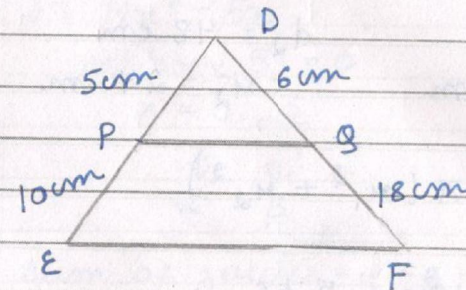 D
5cm 6cm
P Q
10cm 18cm
E F